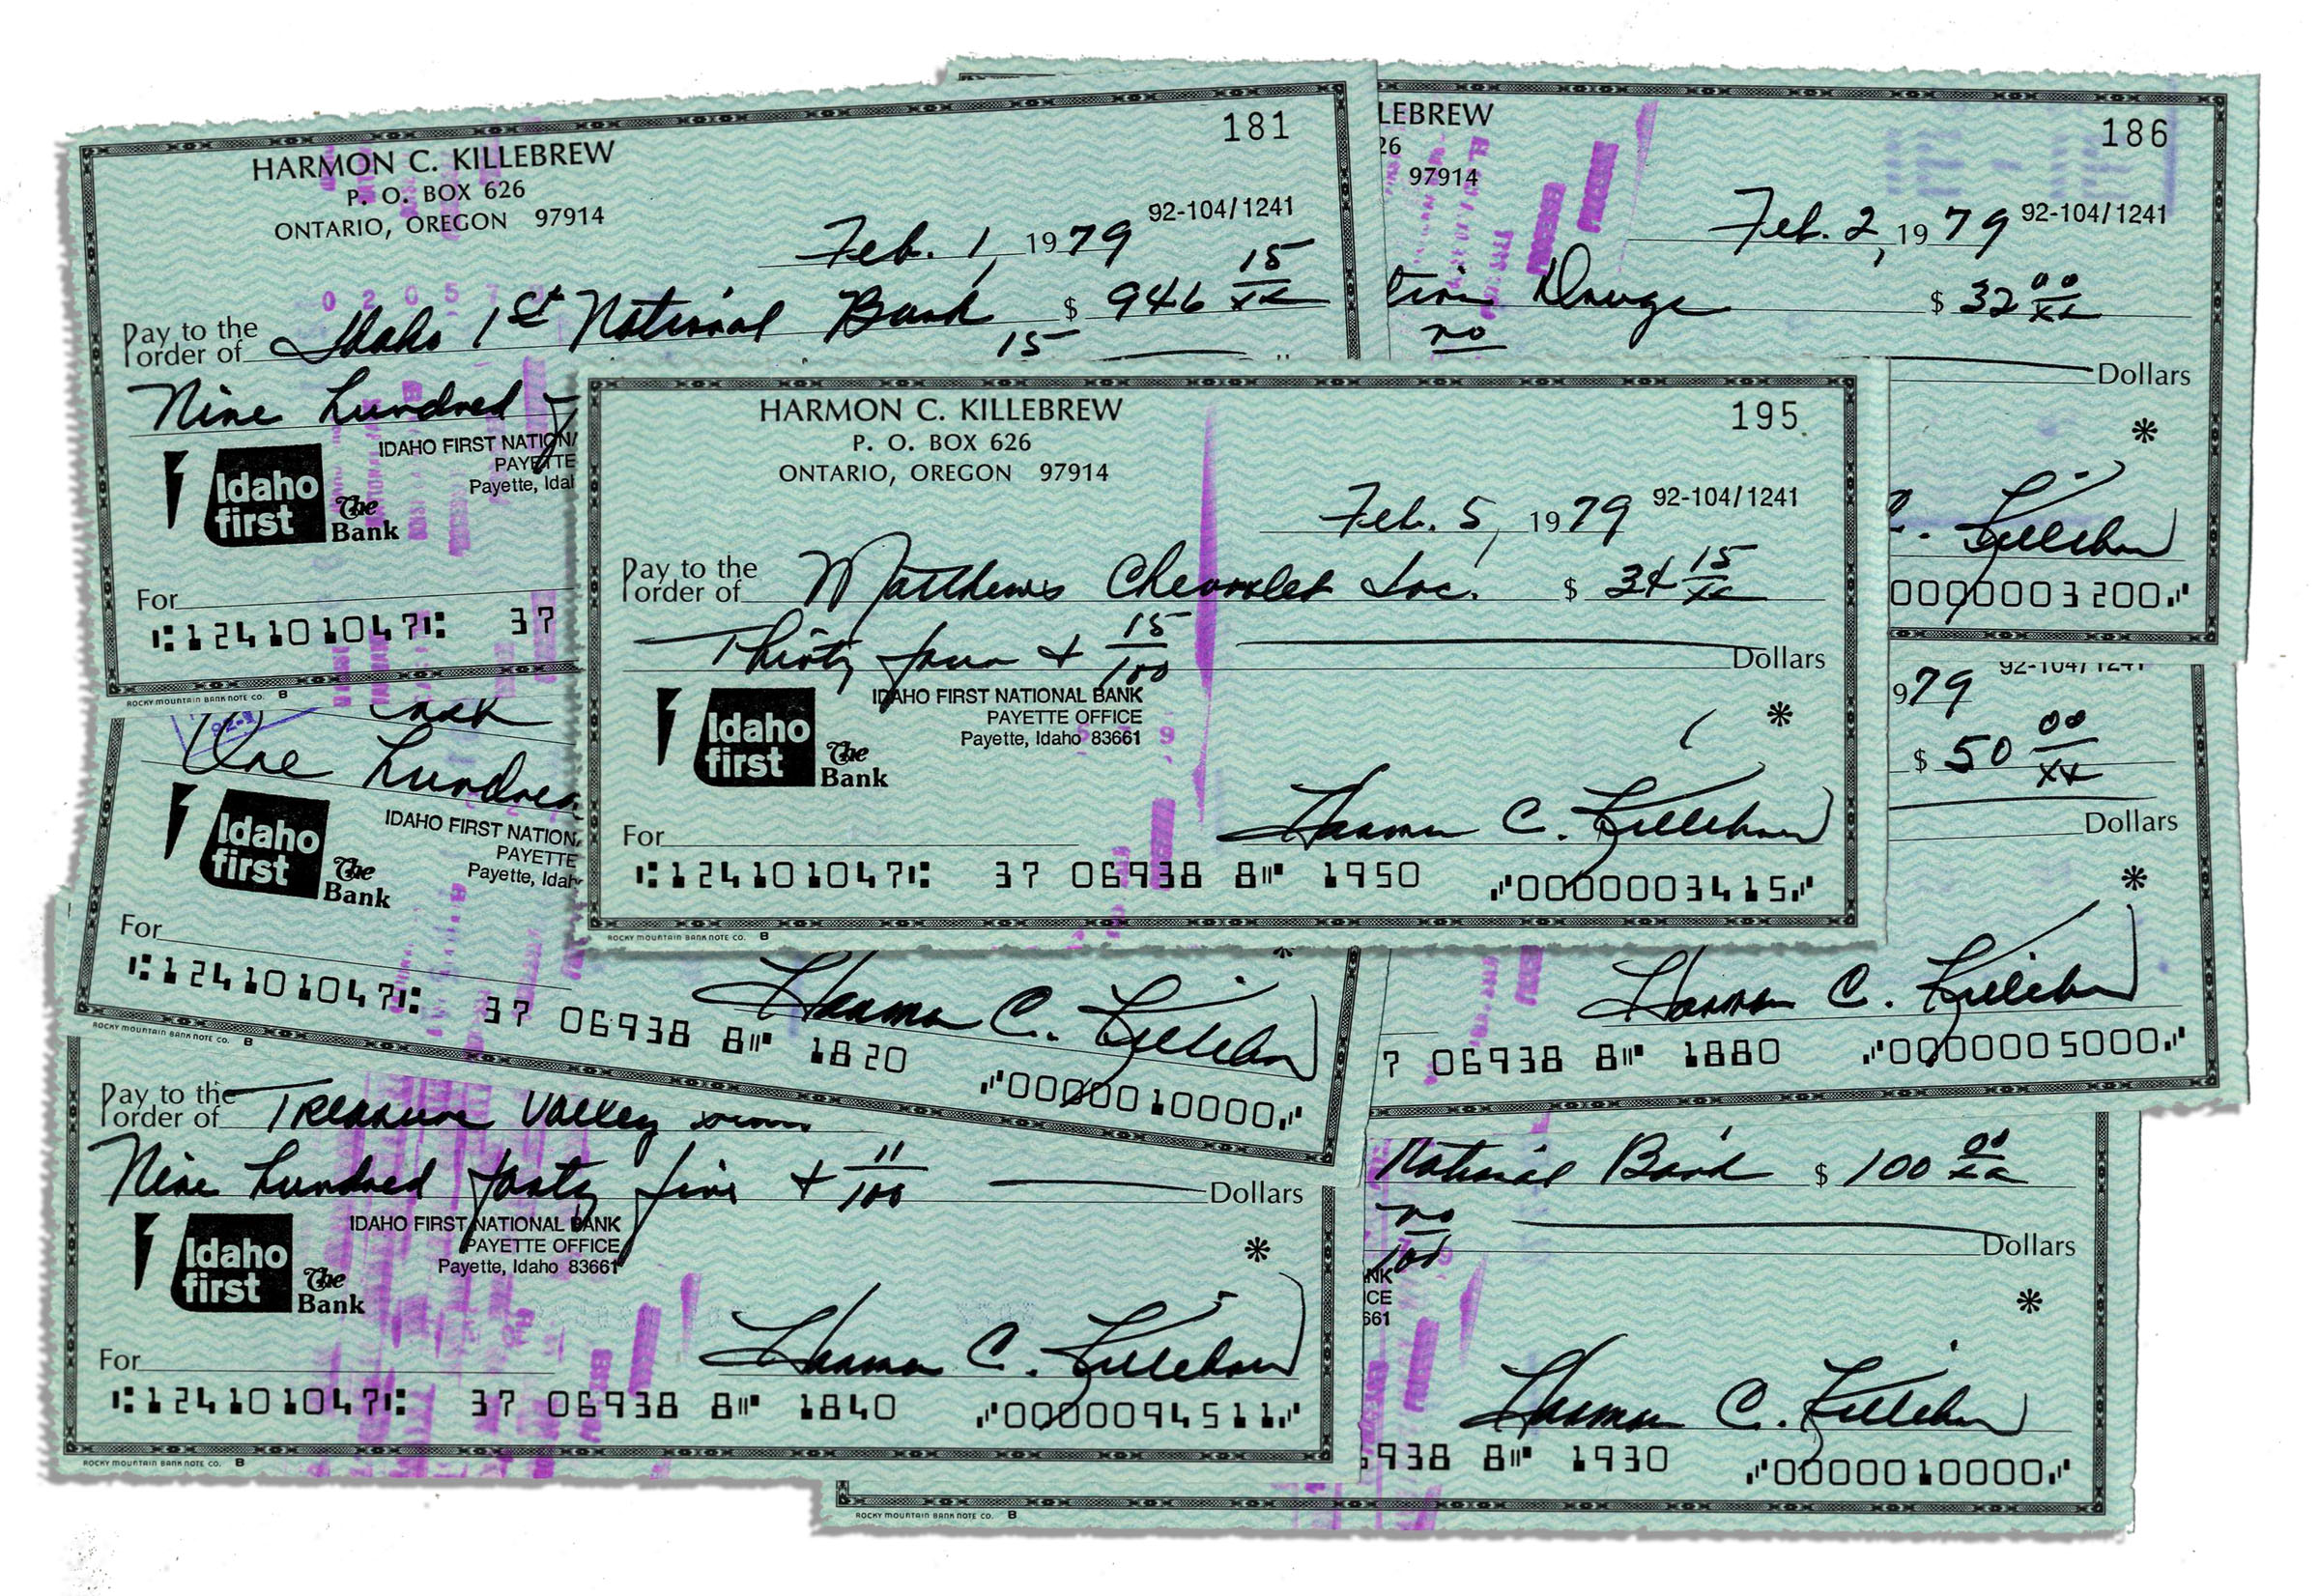 HARMON C. KILLEBREW
P. O. BOX 626
ONTARIO, OREGON 97914
181
92-104/1241
Feb. 1, 1979
Pay to the order of Idaho 1st National Bank $ 946 15/xx
15
Nine hundred
Idaho first The Bank
IDAHO FIRST NATION
PAYETTE
Payette, Idah
For
⑆124101047⑆ 37
ROCKY MOUNTAIN BANK NOTE CO. B
LEBREW
26
97914
186
92-104/1241
Feb. 2, 1979
Drugs $ 32 00/xx
no
Dollars
*
C. Killebrew
0000003200
HARMON C. KILLEBREW
P. O. BOX 626
ONTARIO, OREGON 97914
195
92-104/1241
Feb. 5, 1979
Pay to the order of Matthews Chevrolet Inc. $ 34 15/xx
Thirty four + 15/100 Dollars
Idaho first The Bank
IDAHO FIRST NATIONAL BANK
PAYETTE OFFICE
Payette, Idaho 83661
*
For Harmon C. Killebrew
⑆124101047⑆ 37 06938 8⑈ 1950 ⑇0000003415⑇
ROCKY MOUNTAIN BANK NOTE CO. B
Cash
One hundred
Idaho first The Bank
IDAHO FIRST NATION
PAYETTE
Payette, Idah
For Harmon C. Killebrew
⑆124101047⑆ 37 06938 8⑈ 1820 ⑇0000010000⑇
ROCKY MOUNTAIN BANK NOTE CO. B
979
92-104/1241
$ 50 00/xx
Dollars
*
Harmon C. Killebrew
7 06938 8⑈ 1880 ⑇0000005000⑇
Pay to the order of Treasure Valley
Nine hundred forty five + 11/100 Dollars
Idaho first The Bank
IDAHO FIRST NATIONAL BANK
PAYETTE OFFICE
Payette, Idaho 83661
*
For Harmon C. Killebrew
⑆124101047⑆ 37 06938 8⑈ 1840 ⑇0000094511⑇
ROCKY MOUNTAIN BANK NOTE CO. B
National Bank $ 100 00/xx
no/100 Dollars
NK
CE
661
*
Harmon C. Killebrew
938 8⑈ 1930 ⑇0000010000⑇
ROCKY MOUNTAIN BANK NOTE CO. B